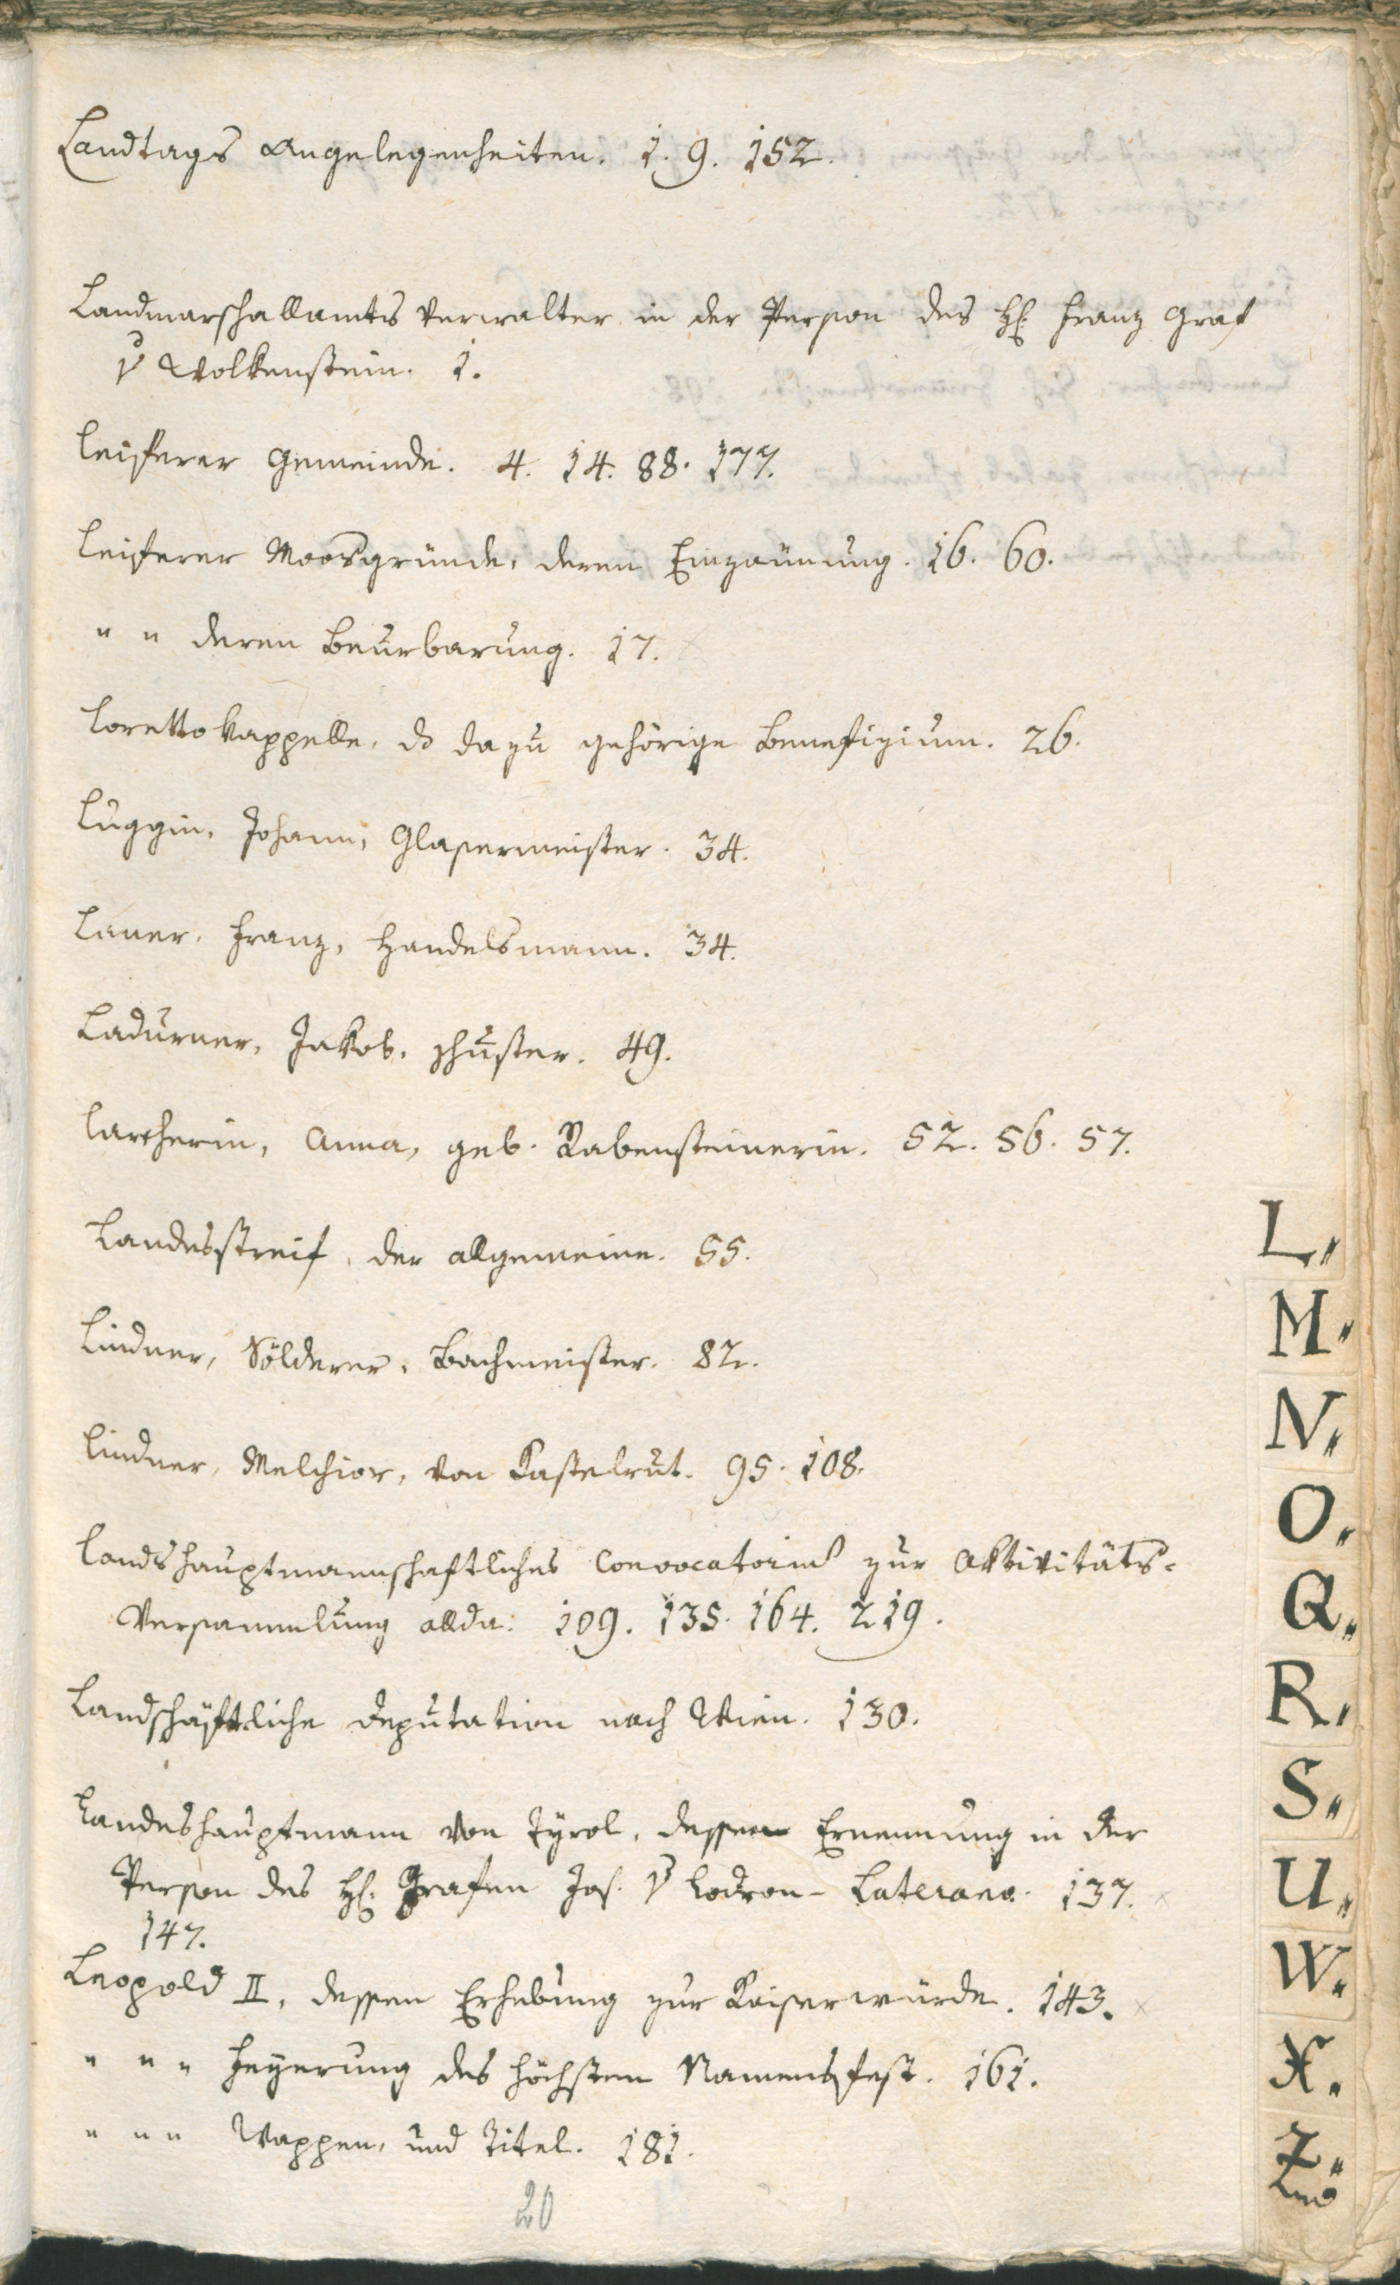 Landtags Angelegenheiten. 1. 9. 152.
Landmarschallamts Verwalter in der Person des H: Franz Graf
v Wolkenstein. 1.
Leiferer Gemeinde. 4. 14. 88. 177.
Leiferer Moosgründe, deren Einzäunung. 16. 60.
" " deren Beurbarung. 17.
Loretto Kappelle, do dazu gehörige Benefizium. 26.
Luggin, Johann, Glasermeister. 34.
Laner, Franz, Handelsmann. 34.
Ladurner, Jakob, Schuster. 49.
Larcherin, Anna, geb. Rabensteinerin. 52. 56. 57.
Landesstreif, der allgemeine. 55.
Lindner, Sölderer, Bachmeister. 82.
Lindner, Melchior, von Kastelrut. 95. 108.
Landshauptmannschaftliches Convocatorium zur Aktivitäts-
Versammlung allda: 109. 135. 164. 219.
Landschäftliche Deputation nach Wien. 130.
Landeshauptmann von Tyrol, dessen Ernennung in der
Person des H: Grafen Jos. v Lodron-Laterano. 137.
147.
Leopold II, dessen Erhebung zur Kaiserwürde. 143.
" " " Feyerung des höchsten Namensfest. 161.
" " " Wappen, und Titel. 181.
20
L,
M,
N,
O,
Q,
R,
S,
U,
W,
X,
Z,